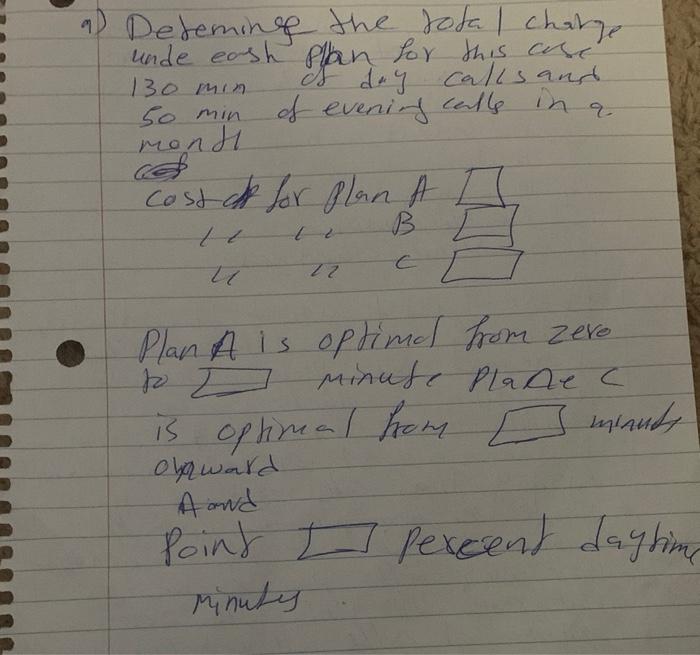 a) Detemine the total charge
unde eash plan for this case
130 min of day calls and
50 min of evening calls in a
month
cost for plan A
" " B
" " C
Plan A is optimal from zero
to minute Plane C
is optimal from minuts
onward
A and
Point percent daytime
minutes